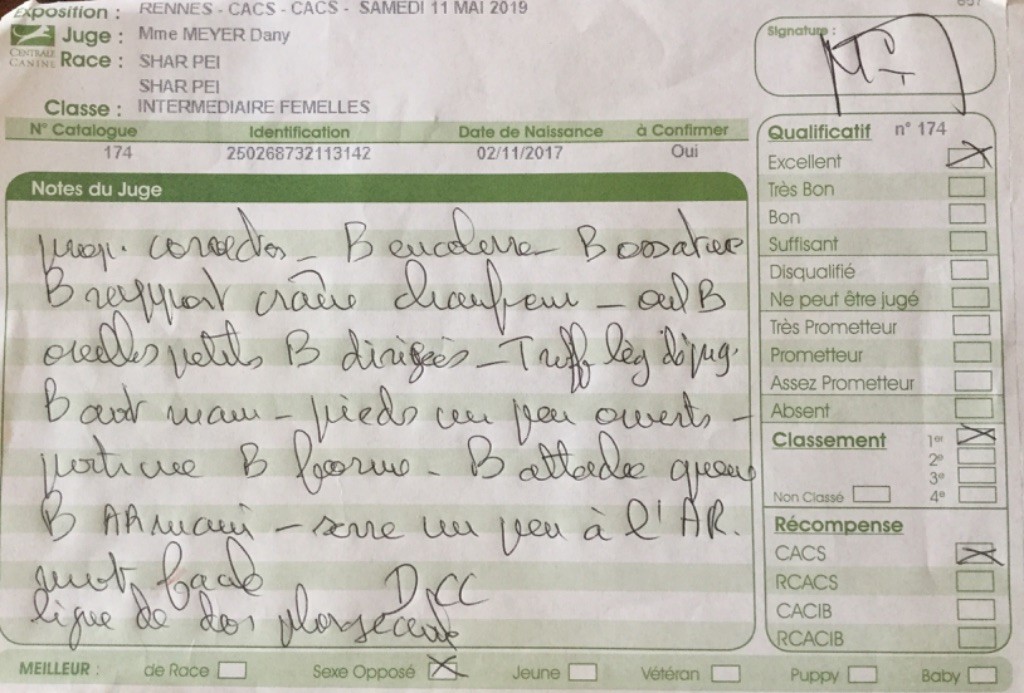 Exposition : RENNES - CACS - CACS - SAMEDI 11 MAI 2019
CENTRALE CANINE
Juge : Mme MEYER Dany
Race : SHAR PEI
SHAR PEI
Classe : INTERMEDIAIRE FEMELLES
N° Catalogue Identification Date de Naissance à Confirmer
174 250268732113142 02/11/2017 Oui
Notes du Juge
prop. correctes - B encolure - B ossature
B rapport crâne chanfrein - oeil B
oreilles petites B dirigées - Truffe lèg dépig.
B avant main - pieds un peu ouverts -
poitrine B forme - B attache queue
B AR main - serre un peu à l'AR.
mvt facile D CC
ligne de dos plongeante
Signature :
Qualificatif n° 174
Excellent
Très Bon
Bon
Suffisant
Disqualifié
Ne peut être jugé
Très Prometteur
Prometteur
Assez Prometteur
Absent
Classement 1er
2e
3e
Non Classé 4e
Récompense
CACS
RCACS
CACIB
RCACIB
MEILLEUR : de Race Sexe Opposé Jeune Vétéran Puppy Baby